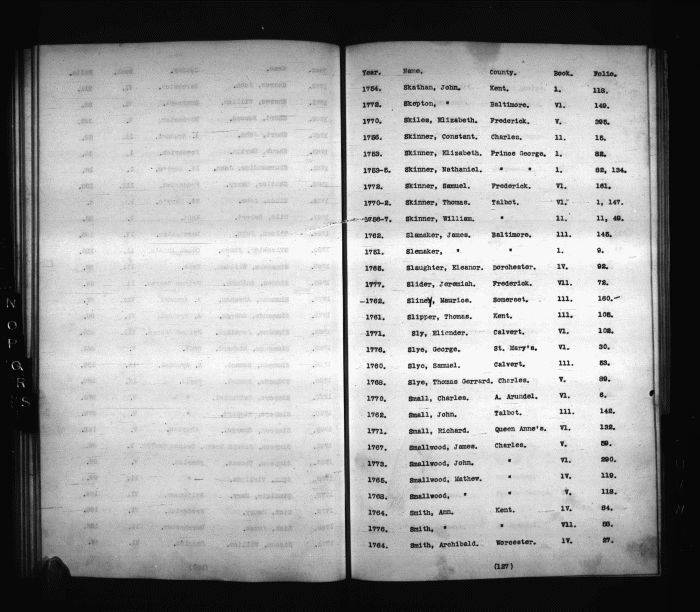 Year. Name. County. Book. Folio.
1754. Skathan, John. Kent. 1. 118.
1772. Skepton, " Baltimore. Vl. 149.
1770. Skiles, Elizabeth. Frederick. V. 295.
1756. Skinner, Constant. Charles. 11. 15.
1753. Skinner, Elizabeth. Prince George. 1. 82.
1753-5. Skinner, Nathaniel. " " 1. 82, 134.
1772. Skinner, Samuel. Frederick. Vl. 161.
1770-2. Skinner, Thomas. Talbot. Vl. 1, 147.
1756-7. Skinner, William. " 11. 11, 49.
1762. Slemaker, James. Baltimore. 111. 145.
1751. Slemaker, " " 1. 9.
1765. Slaughter, Eleanor. Dorchester. 1V. 92.
1777. Slider, Jeremiah. Frederick. Vll. 72.
1762. Sliney, Maurice. Somerset. 111. 160.
1761. Slipper, Thomas. Kent. 111. 105.
1771. Sly, Eliender. Calvert. Vl. 102.
1776. Slye, George. St. Mary's. Vl. 30.
1760. Slye, Samuel. Calvert. 111. 53.
1768. Slye, Thomas Gerrard. Charles. V. 89.
1770. Small, Charles. A. Arundel. Vl. 6.
1762. Small, John. Talbot. 111. 142.
1771. Small, Richard. Queen Anne's. Vl. 132.
1767. Smallwood, James. Charles. V. 59.
1773. Smallwood, John. " Vl. 290.
1765. Smallwood, Mathew. " 1V. 119.
1768. Smallwood, " " V. 118.
1764. Smith, Ann. Kent. 1V. 84.
1776. Smith, " " Vll. 53.
1764. Smith, Archibald. Worcester. 1V. 27.
(127)
N O P Q R S